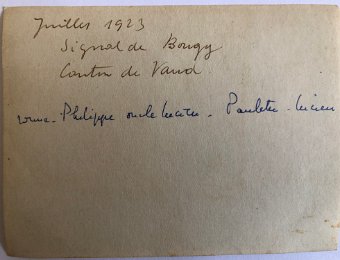 Juillet 1923
Signal de Bougy
Canton de Vaud
Philippe oncle Lucien. Paulette. Lucien